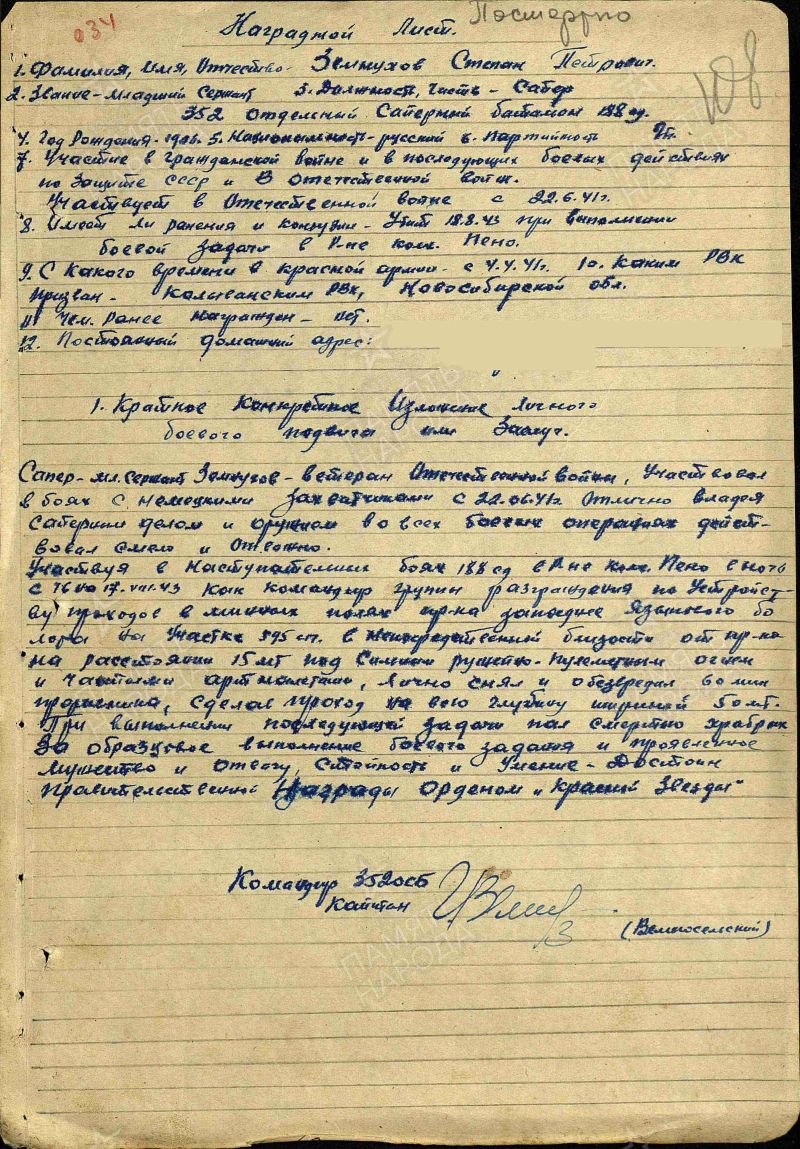 034
Посмертно
Наградной Лист.
1. Фамилия, Имя, Отчество - Землухов Степан Петрович.
2. Звание - младший Сержант 3. Должность, часть - Сапер
352 отдельный Саперный баталион 188 сд.
4. Год Рождения - 5. Национальность - русский 6. Партийность
7. Участие в Гражданской войне и в последующих боевых действиях
по защите СССР и в Отечественной войне.
Участвует в Отечественной войне с 22.6.41г.
8. Имеет ли ранения и контузии - Убит 18.8.43 при выполнении
боевой задачи в р-не
9. С Какого времени в красной армии - с 4.4.41г. 10. Каким РВК
призван - Колыванским РВК, Новосибирской обл.
11 Чем Ранее награжден - нет.
12. Постоянный домашний адрес:
1. Краткое Конкретное Изложение личного
боевого подвига или Заслуг.
Сапер - мл. Сержант Землухов - ветеран Отечественной войны, Участвовал
в боях с немецкими захватчиками с 22.06.41г. Отлично владея
саперным делом и оружием во всех боевых операциях дейст-
вовал смело и отважно.
Участвуя в Наступательных боях 188 сд в р-не в ночь
с 16 на 17.VIII.43 как командир группы разграждения по Устройст-
ву проходов в минных полях пр-ка западнее Язьвского бо
лота на Участке 595 сп. в непосредственной близости от пр-ка
на расстоянии 15 мт под Сильным ружейно-пулеметным огнем
и частыми артналетами, лично снял и обезвредил 60 мин
противника, сделав проход на всю глубину шириной 50 мт.
При выполнении последующей задачи пал смертью храбрых
За образцовое выполнение боевого задания и проявленное
мужество и отвагу, Стойкость и Умение - Достоин
правительственной Награды Орденом „Красной Звезды"
Командир 352 ОСБ
Капитан
(Великосельский)
ПАМЯТЬ
НАРОДА